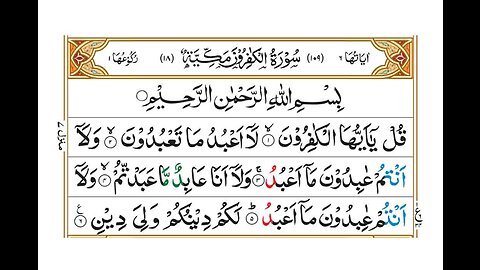 اٰيَاتُهَا ٦ (١٠٩) سُوْرَةُ الْكٰفِرُوْنَ مَكِّيَّةٌ (١٨) رُكُوْعُهَا ١
بِسْمِ اللّٰهِ الرَّحْمٰنِ الرَّحِيْمِ
قُلْ يٰۤاَيُّهَا الْكٰفِرُوْنَ ۙ﴿۱﴾ لَاۤ اَعْبُدُ مَا تَعْبُدُوْنَ ۙ﴿۲﴾ وَلَاۤ
اَنْتُمْ عٰبِدُوْنَ مَاۤ اَعْبُدُ ۚ﴿۳﴾ وَلَاۤ اَنَا عَابِدٌ مَّا عَبَدْتُّمْ ۙ﴿۴﴾ وَلَاۤ
اَنْتُمْ عٰبِدُوْنَ مَاۤ اَعْبُدُ ؕ﴿۵﴾ لَكُمْ دِيْنُكُمْ وَلِيَ دِيْنِ ﴿۶﴾ ع
منزل ٧